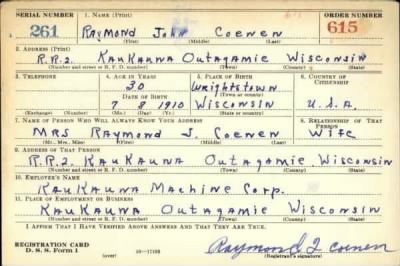 SERIAL NUMBER 1. NAME (Print) ORDER NUMBER
261 Raymond John Coenen 615
(First) (Middle) (Last)
2. ADDRESS (Print)
R.R.2. Kaukauna Outagamie Wisconsin
(Number and street or R. F. D. number) (Town) (County) (State)
3. TELEPHONE 4. AGE IN YEARS 5. PLACE OF BIRTH 6. COUNTRY OF CITIZENSHIP
30 Wrightstown
(Town or county)
DATE OF BIRTH
7 8 1910 Wisconsin U.S.A.
(Exchange) (Number) (Mo.) (Day) (Yr.) (State or country)
7. NAME OF PERSON WHO WILL ALWAYS KNOW YOUR ADDRESS 8. RELATIONSHIP OF THAT PERSON
Mrs Raymond J. Coenen Wife
(Mr., Mrs., Miss) (First) (Middle) (Last)
9. ADDRESS OF THAT PERSON
R.R.2. Kaukauna Outagamie Wisconsin
(Number and street or R. F. D. number) (Town) (County) (State)
10. EMPLOYER'S NAME
Kaukauna Machine Corp.
11. PLACE OF EMPLOYMENT OR BUSINESS
Kaukauna Outagamie Wisconsin
(Number and street or R. F. D. number) (Town) (County) (State)
I AFFIRM THAT I HAVE VERIFIED ABOVE ANSWERS AND THAT THEY ARE TRUE.
REGISTRATION CARD
D. S. S. Form 1 (over) 16—17105 Raymond J Coenen
(Registrant's signature)